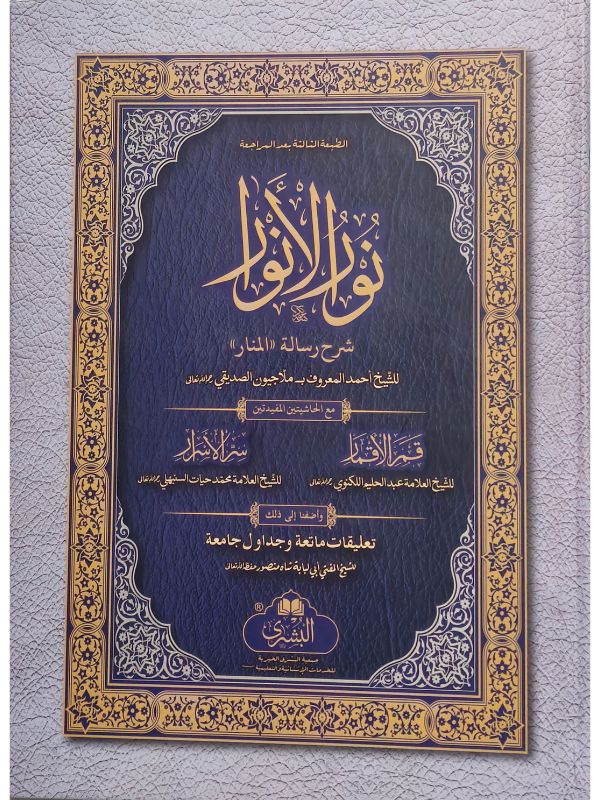 الطبعة الثالثة بعد المراجعة
نُورُ الأَنوَار
شرح رسالة «المنار»
للشيخ أحمد المعروف بـ ملاجيون الصديقي رحمه الله تعالى
مع الحاشيتين المفيدتين
قمر الأقمار
سرّ الأسرار
للشيخ العلامة عبد الحليم اللكنوي رحمه الله تعالى
للشيخ العلامة محمد حيات السنبهلي رحمه الله تعالى
وأضفنا إلى ذلك
تعليقات ماتعة وجداول جامعة
للشيخ المفتي أبي لبابة شاه منصور حفظه الله تعالى
®
البشرى
جمعية البشرى الخيرية
للخدمات الإنسانية والتعليمية